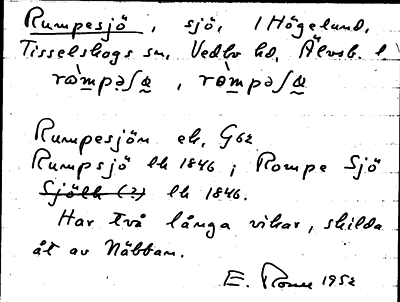 Rumpesjö, sjö, i Högelund,
Tisselskogs sn, Vedbo hd, Älvsb. l
Rumpesjön ek, G62
Rumpsjö lk 1846; Rompe Sjö
Sjölk (?) lk 1846.
Har två långa vikar, skilda
åt av Näbban.
E. 1952